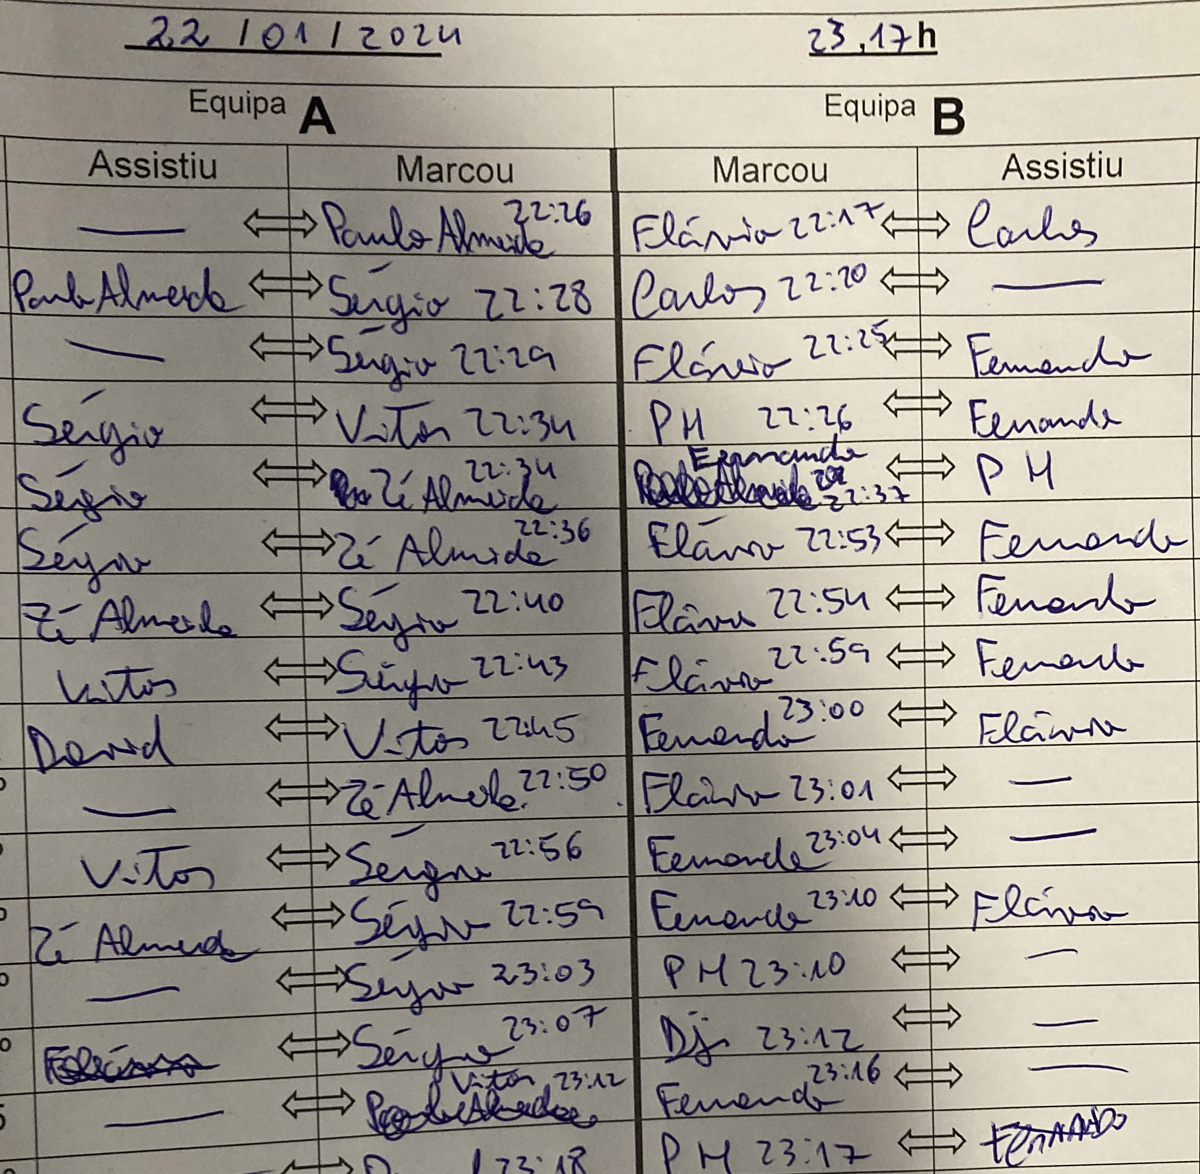 22/01/2024 23,17h
Equipa A Equipa B
Assistiu Marcou Marcou Assistiu
— ⇔ Paulo Almeida 22:26 Flávio 22:17 ⇔ Carlos
Paulo Almeida ⇔ Sérgio 22:28 Carlos 22:20 ⇔ —
— ⇔ Sérgio 22:29 Flávio 22:25 ⇔ Fernando
Sérgio ⇔ Vitor 22:34 PH 22:26 ⇔ Fernando
Sérgio ⇔ Zé Almeida 22:34 Fernando 22:37 ⇔ PH
Sérgio ⇔ Zé Almeida 22:36 Flávio 22:53 ⇔ Fernando
Zé Almeida ⇔ Sérgio 22:40 Flávio 22:54 ⇔ Fernando
Vitor ⇔ Sérgio 22:43 Flávio 22:59 ⇔ Fernando
David ⇔ Vitor 22:45 Fernando 23:00 ⇔ Flávio
— ⇔ Zé Almeida 22:50 Flávio 23:01 ⇔ —
Vitor ⇔ Sérgio 22:56 Fernando 23:04 ⇔ —
Zé Almeida ⇔ Sérgio 22:59 Fernando 23:10 ⇔ Flávio
— ⇔ Sérgio 23:03 PH 23:10 ⇔ —
⇔ Sérgio 23:07 Dj 23:12 ⇔ —
— ⇔ Vitor 23:12 Fernando 23:16 ⇔ —
⇔ 23:18 PH 23:17 ⇔ FERNANDO